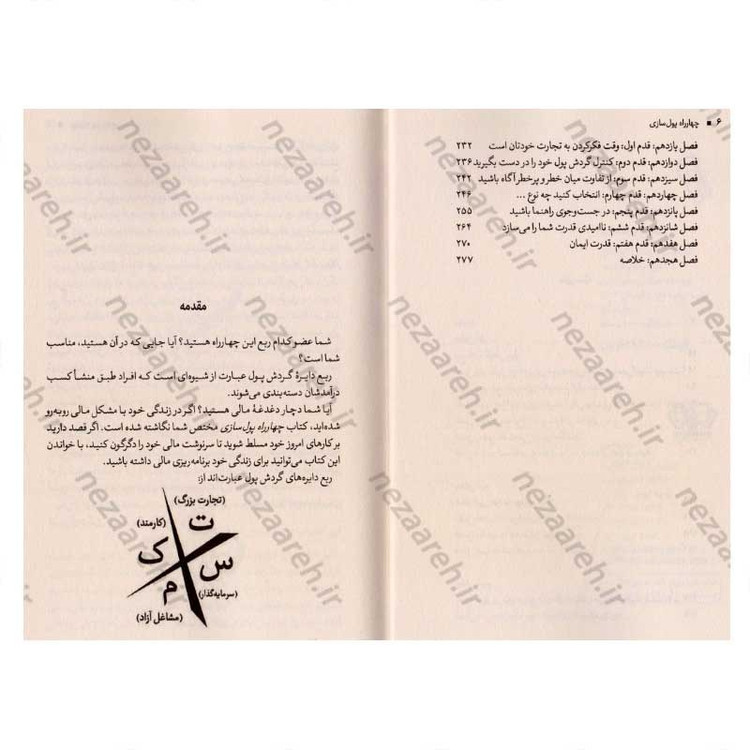 ۶ ■ چهارراه پول‌سازی
فصل یازدهم: قدم اول: وقت فکرکردن به تجارت خودتان است ۲۳۲
فصل دوازدهم: قدم دوم: کنترل گردش پول خود را در دست بگیرید ۲۳۶
فصل سیزدهم: قدم سوم: از تفاوت میان خطر و پرخطر آگاه باشید ۲۴۲
فصل چهاردهم: قدم چهارم: انتخاب کنید چه نوع ... ۲۴۶
فصل پانزدهم: قدم پنجم: در جست‌وجوی راهنما باشید ۲۵۵
فصل شانزدهم: قدم ششم: ناامیدی قدرت شما را می‌سازد ۲۶۴
فصل هفدهم: قدم هفتم: قدرت ایمان ۲۷۰
فصل هجدهم: خلاصه ۲۷۷
مقدمه
شما عضو کدام ربع این چهارراه هستید؟ آیا جایی که در آن هستید، مناسب
شما است؟
ربع دایرهٔ گردش پول عبارت از شیوه‌ای است که افراد طبق منشأ کسب
درآمدشان دسته‌بندی می‌شوند.
آیا شما دچار دغدغهٔ مالی هستید؟ اگر در زندگی خود با مشکل مالی روبه‌رو
شده‌اید، کتاب چهارراه پول‌سازی مختص شما نگاشته شده است. اگر قصد دارید
بر کارهای امروز خود مسلط شوید تا سرنوشت مالی خود را دگرگون کنید، با خواندن
این کتاب می‌توانید برای زندگی خود برنامه‌ریزی مالی داشته باشید.
ربع دایره‌های گردش پول عبارت‌اند از:
(تجارت بزرگ)
ت
(کارمند)
ک
س
(سرمایه‌گذار)
م
(مشاغل آزاد)
nezaareh.ir
nezaareh.ir
nezaareh.ir
nezaareh.ir
nezaareh.ir
nezaareh.ir
nezaareh.ir
nezaareh.ir
nezaareh.ir
nezaareh.ir
nezaareh.ir